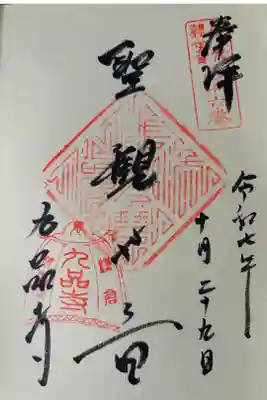 奉拝
令和七年
十月二十九日
聖観世音
九品寺
鎌倉
九品寺